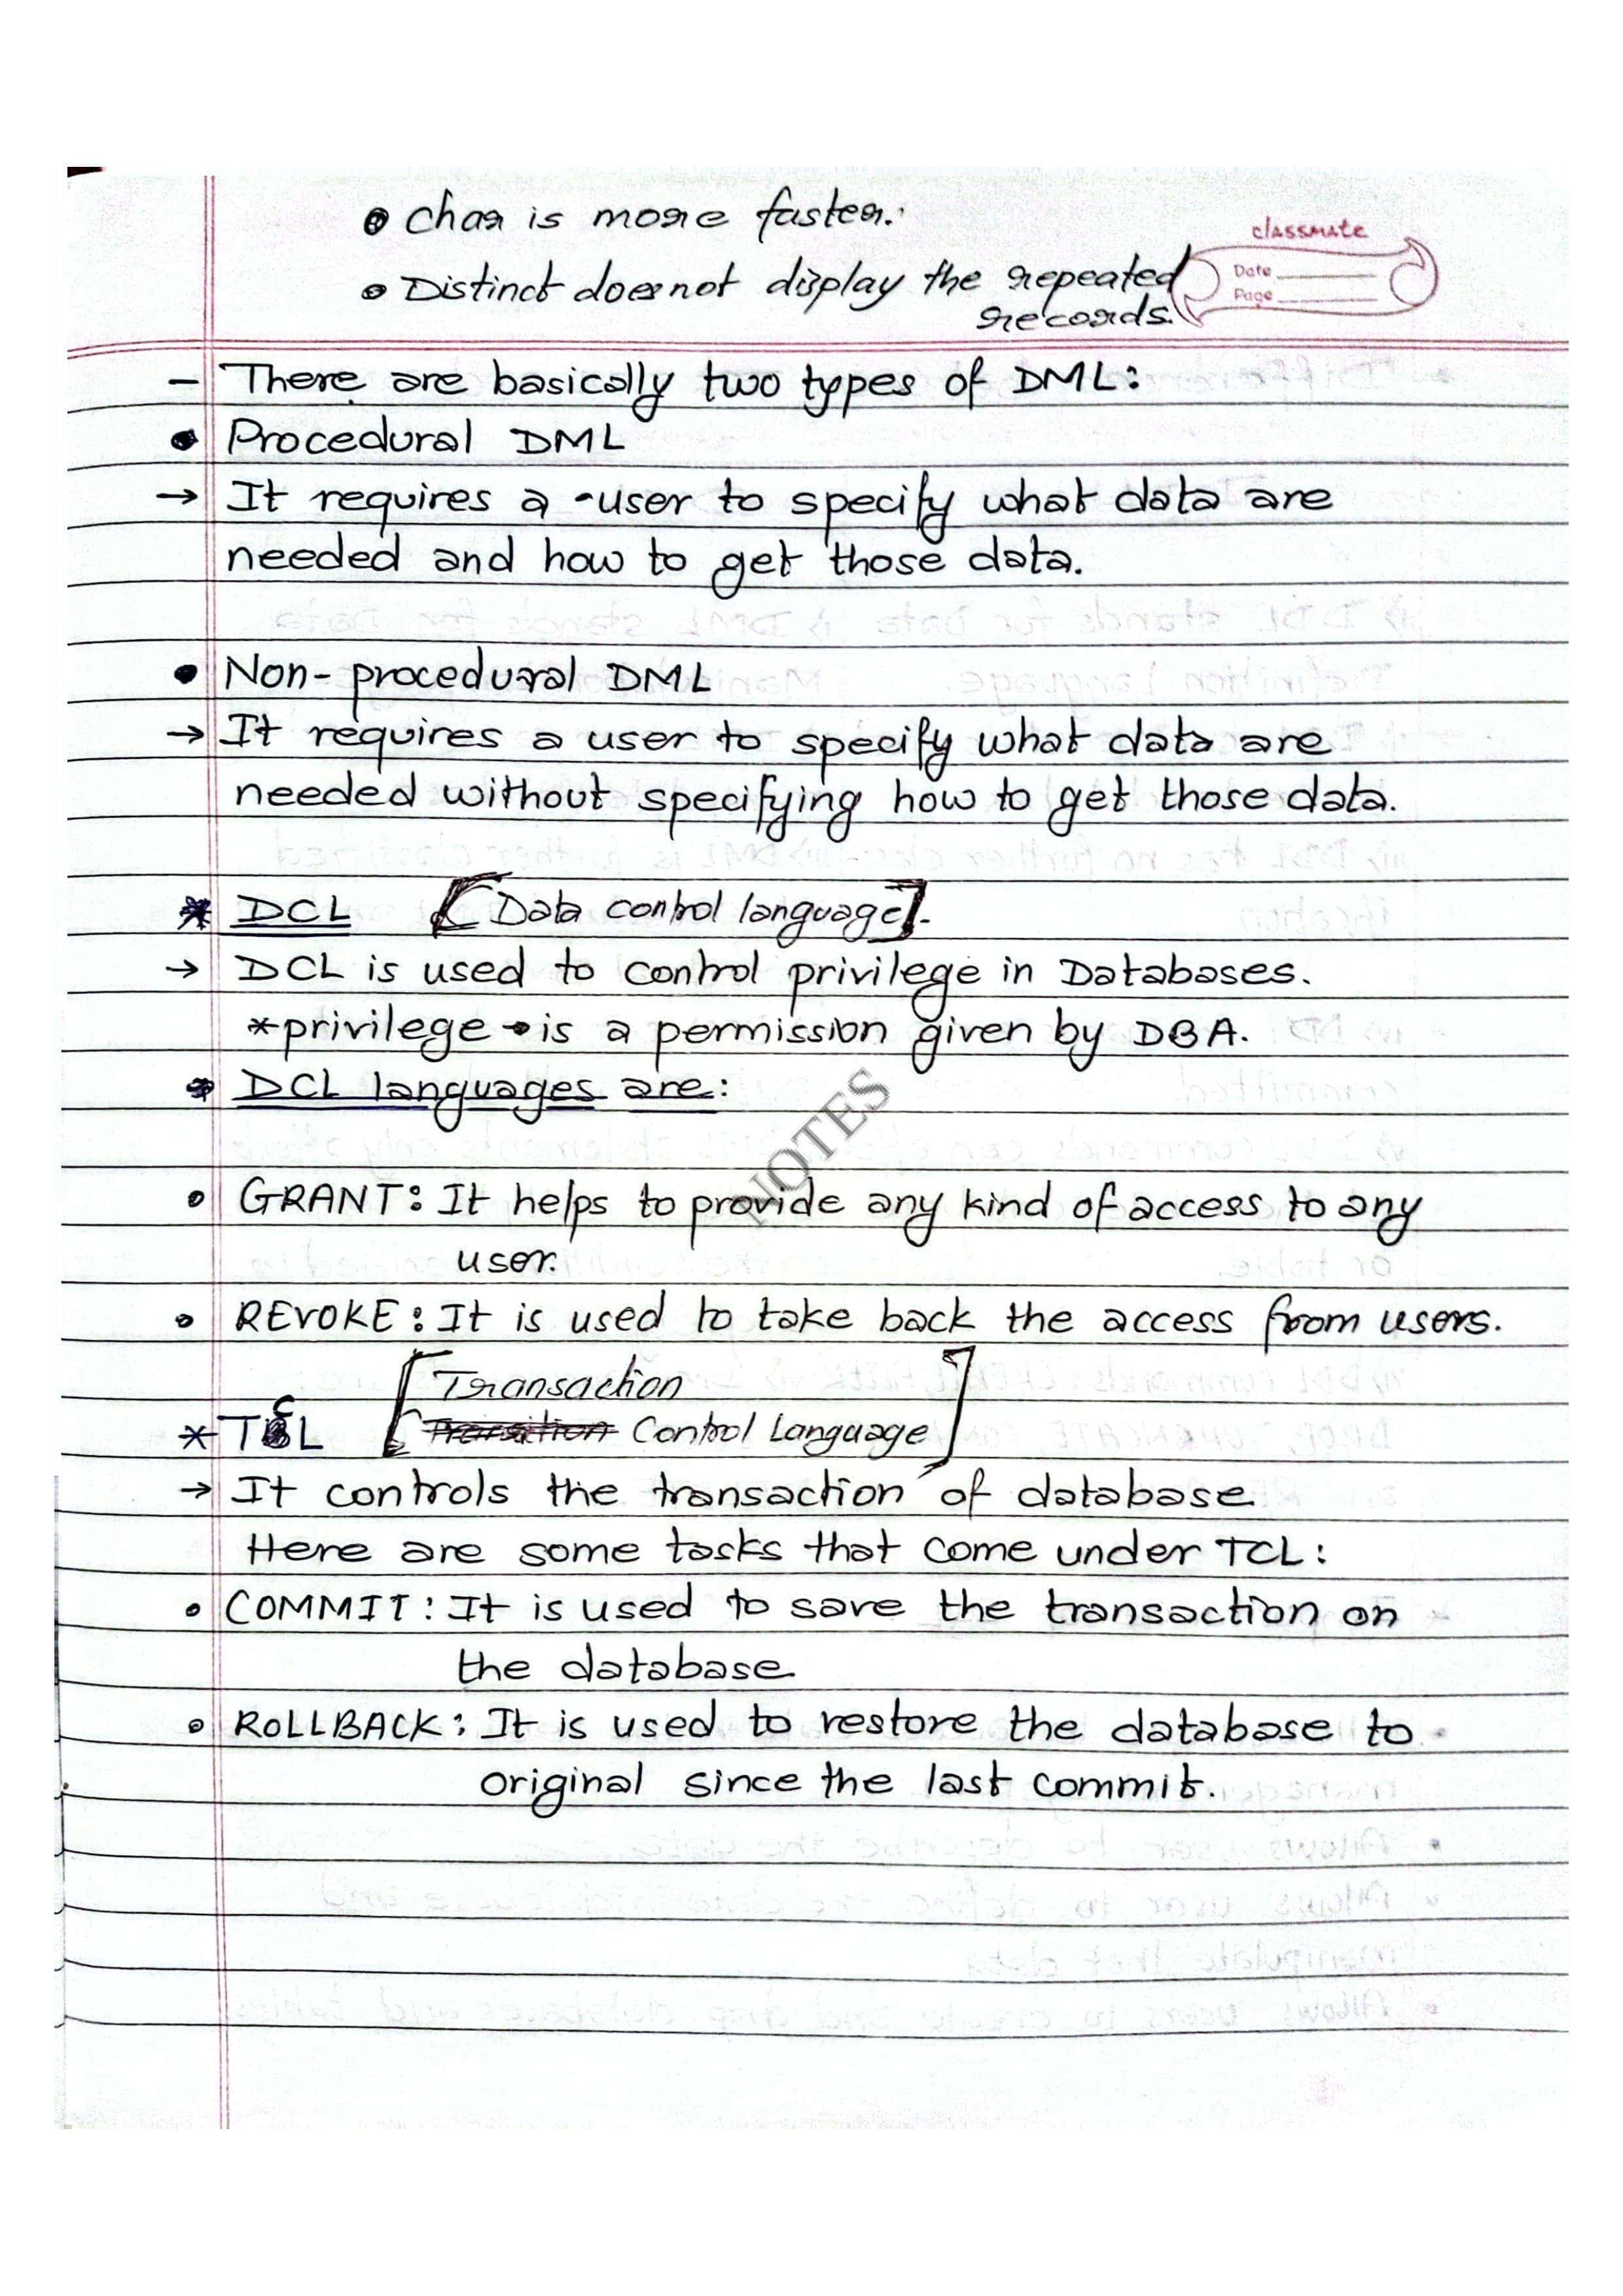 • Char is more faster.
classmate
• Distinct does not display the repeated
Date
Page
records.
– There are basically two types of DML:
• Procedural DML
→ It requires a user to specify what data are
needed and how to get those data.
• Non-procedural DML
→ It requires a user to specify what data are
needed without specifying how to get those data.
* DCL [Data control language].
→ DCL is used to control privilege in Databases.
*privilege → is a permission given by DBA.
→ DCL languages are:
• GRANT: It helps to provide any kind of access to any
user.
NOTES
• REVOKE: It is used to take back the access from users.
[Transaction
* TCL Transition Control Language]
→ It controls the transaction of database.
Here are some tasks that come under TCL:
• COMMIT: It is used to save the transaction on
the database.
• ROLLBACK: It is used to restore the database to
original since the last commit.